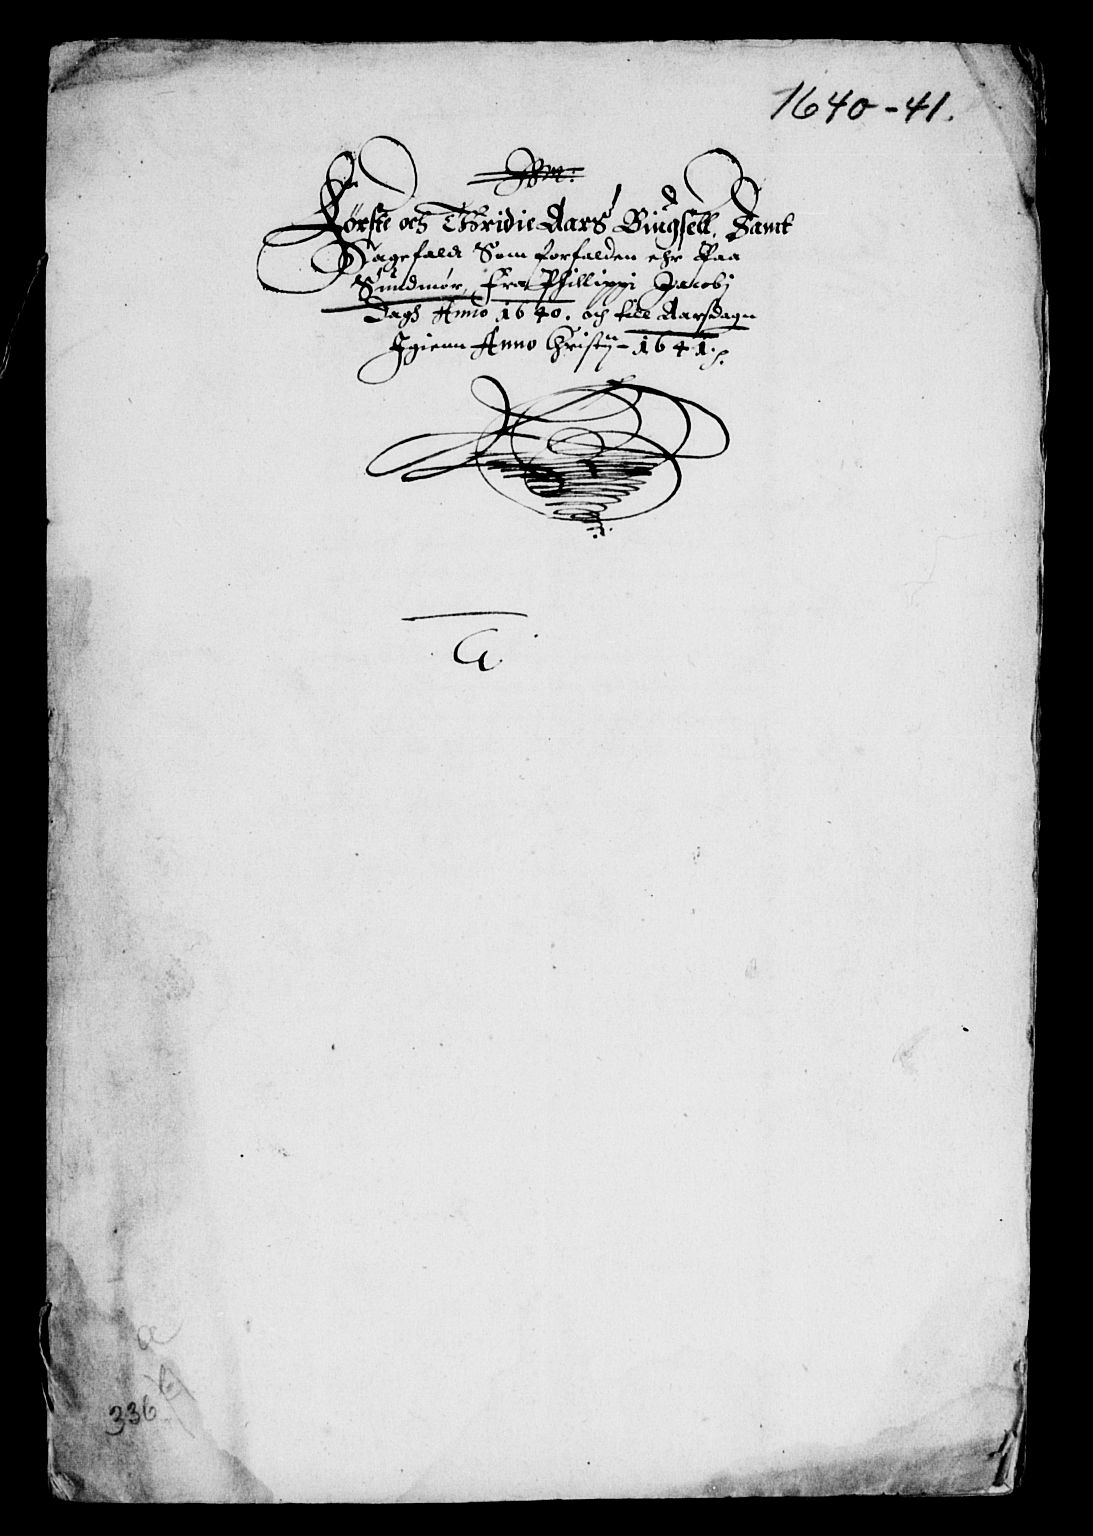 1640-41.
Første och Thridie Aars Bÿgsell, Samt
Sagefald Som forfalden ehr Paa
Sundmør, Fra Phillippi Jacobj
Dagh Anno 1640. och till Aarsdagn
Igienn Anno Christij 1641.
336